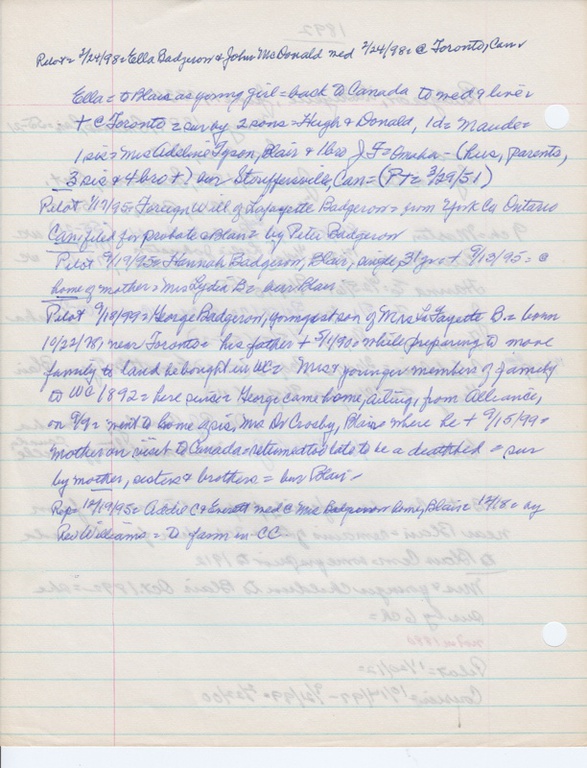 Pilot = 3/24/98 = Ella Badgerow & John McDonald med 2/24/98 = @ Toronto, Can
Ella = to Blair as young girl = back to Canada to med & live =
+ @ Toronto = sur by 2 sons = Hugh & Donald, 1 d = Maude =
1 sis = Mrs Adeline Tyson, Blair & 1 bro J F = Omaha = (hus, parents,
3 sis & 4 bro +) bur Stouffersville, Can = (PT = 3/29/51)
Pilot 1/17/95 = Foreign Will of Lafayette Badgerow = from York Co Ontario
Can filed for probate @ Blair = by Peter Badgerow
Pilot 9/19/95 = Hannah Badgerow, Blair, single, 31 yr + 9/13/95 = @
home of mother = Mrs Lydia B = bur Blair
Pilot 9/18/99 = George Badgerow, youngest son of Mrs LaFayette B. = born
10/22/78, near Toronto = his father + 5/1/90 = while preparing to move
family to land he bought in WC = Mrs & younger members of family
to WC 1892 = here since = George came home, ailing, from Alliance,
on 9/9 = went to home of sis, Mrs Dr Crosby, Blair = where he + 9/15/99 =
Mother on visit to Canada = returned too late to be @ deathbed = sur
by mother, sisters & brothers = bur Blair -
Rep = 12/19/95 = Addie C & Everett med @ Mrs Badgerow home, Blair = 12/18 = by
Rev Williams = To farm in CC
1892
Mrs & younger children to Blair Oct 1892 =
sur by 6 ch =